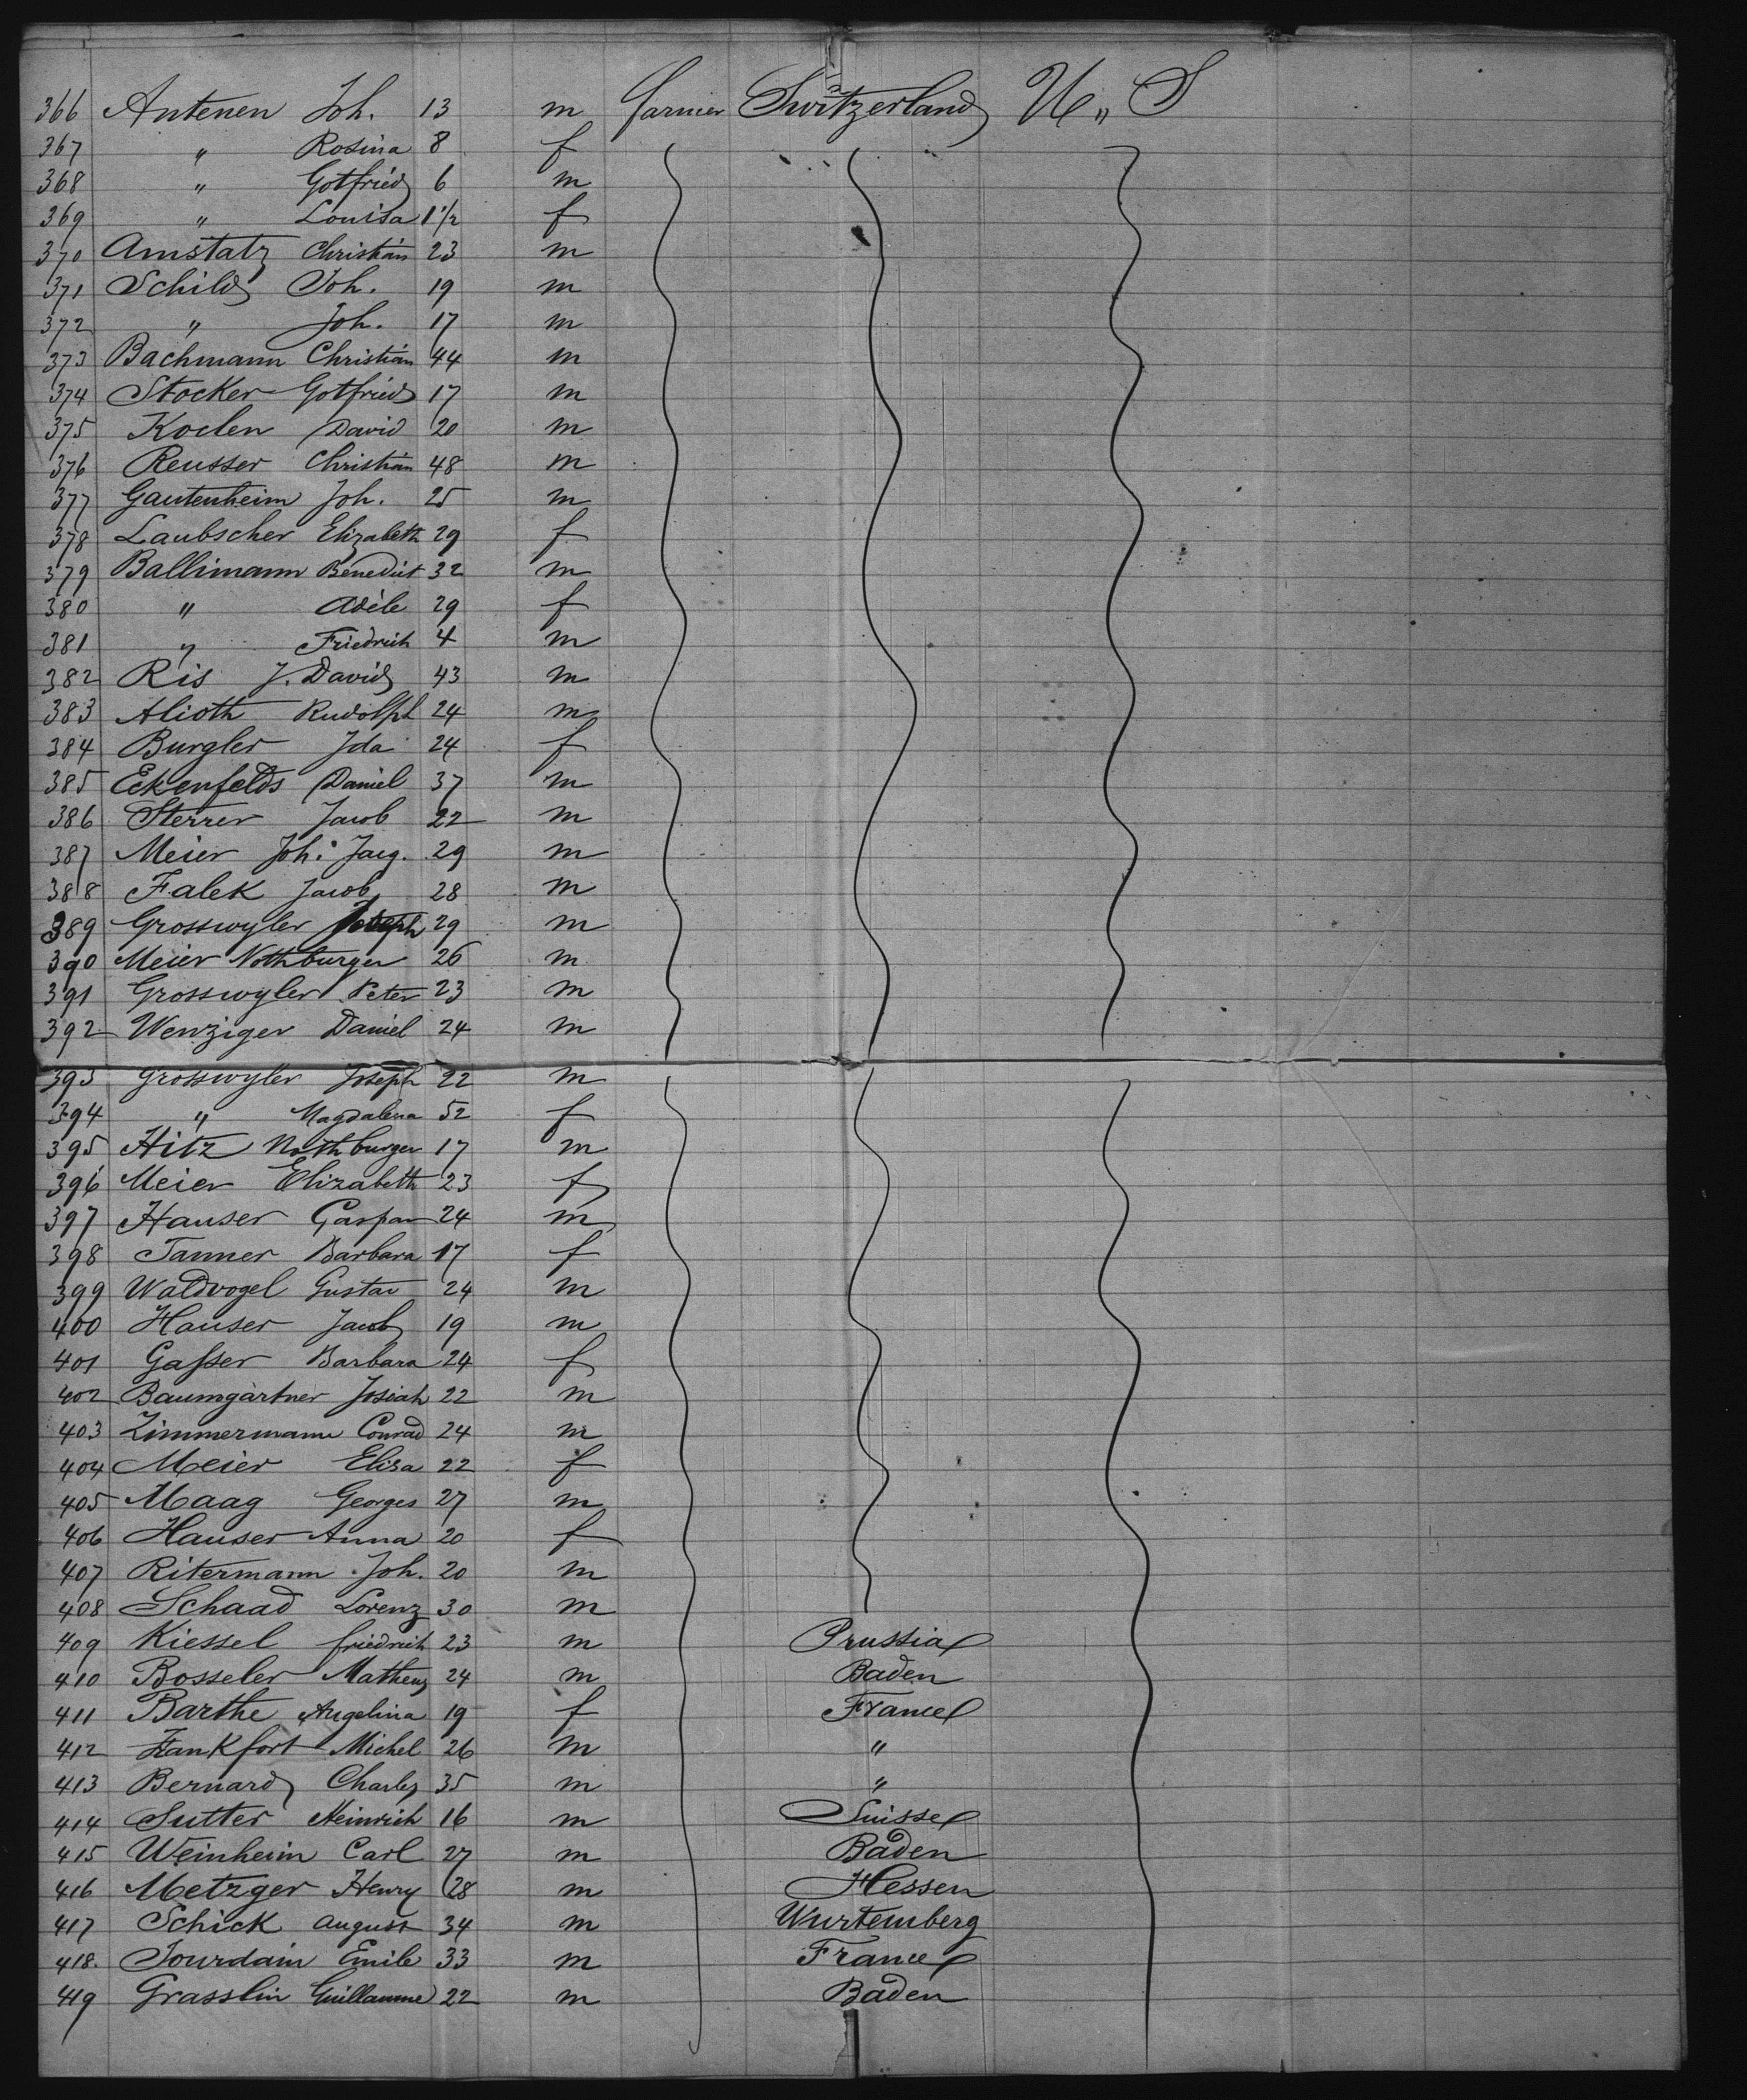 366 Antenen Joh. 13 m farmer Switzerland U,, S
367 " Rosina 8 f
368 " Gotfried 6 m
369 " Louisa 1 1/2 f
370 Amstatz Christian 23 m
371 Schild Joh. 19 m
372 " Joh. 17 m
373 Bachmann Christian 44 m
374 Stocker Gotfried 17 m
375 Koclen David 20 m
376 Reusser Christian 48 m
377 Gautenheim Joh. 25 m
378 Laubscher Elizabeth 29 f
379 Ballimann Benedict 32 m
380 " Adèle 29 f
381 " Friedrich 4 m
382 Ris J. David 43 m
383 Alioth Rudolph 24 m
384 Burgler Ida 24 f
385 Eckenfelds Daniel 37 m
386 Sterrer Jacob 22 m
387 Meier Joh. Jacg. 29 m
388 Falek Jacob 28 m
389 Grosswyler Joseph 29 m
390 Meier Nothburger 26 m
391 Grosswyler Peter 23 m
392 Wenziger Daniel 24 m
393 Grosswyler Joseph 22 m
394 " Magdalena 52 f
395 Hitz Nothburger 17 m
396 Meier Elizabeth 23 f
397 Hauser Gaspar 24 m
398 Tanner Barbara 17 f
399 Waldvogel Gustav 24 m
400 Hauser Jacob 19 m
401 Gasser Barbara 24 f
402 Baumgärtner Josiah 22 m
403 Zimmermann Conrad 24 m
404 Meier Elisa 22 f
405 Maag Georges 27 m
406 Hauser Anna 20 f
407 Ritermann Joh. 20 m
408 Schaad Lorenz 30 m
409 Kiessel friedrich 23 m Prussia
410 Bosseler Matheus 24 m Baden
411 Barthe Angelina 19 f France
412 Frankfort Michel 26 m "
413 Bernard Charles 35 m "
414 Sutter Heinrich 16 m Suisse
415 Weinheim Carl 27 m Baden
416 Metzger Henry 28 m Hessen
417 Schick August 34 m Wurtemberg
418. Jourdain Emile 33 m France
419 Grasslin Guillaume 22 m Baden